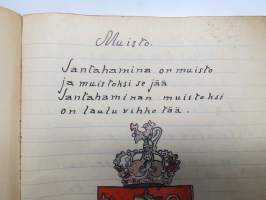 Muisto.
Santahamina on muisto
ja muistoksi se jää
Santahaminan muistoksi
on laulu vihko tää.